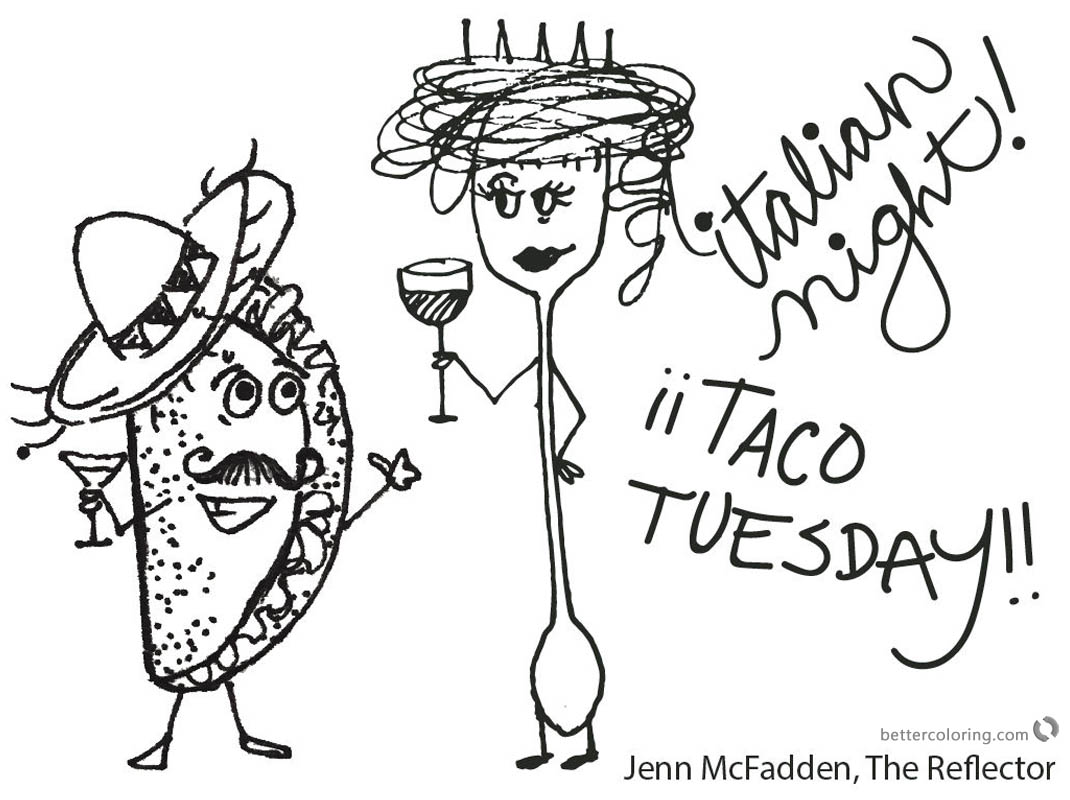 italian
night!
¡¡TACO
TUESDAY!!
bettercoloring.com
Jenn McFadden, The Reflector